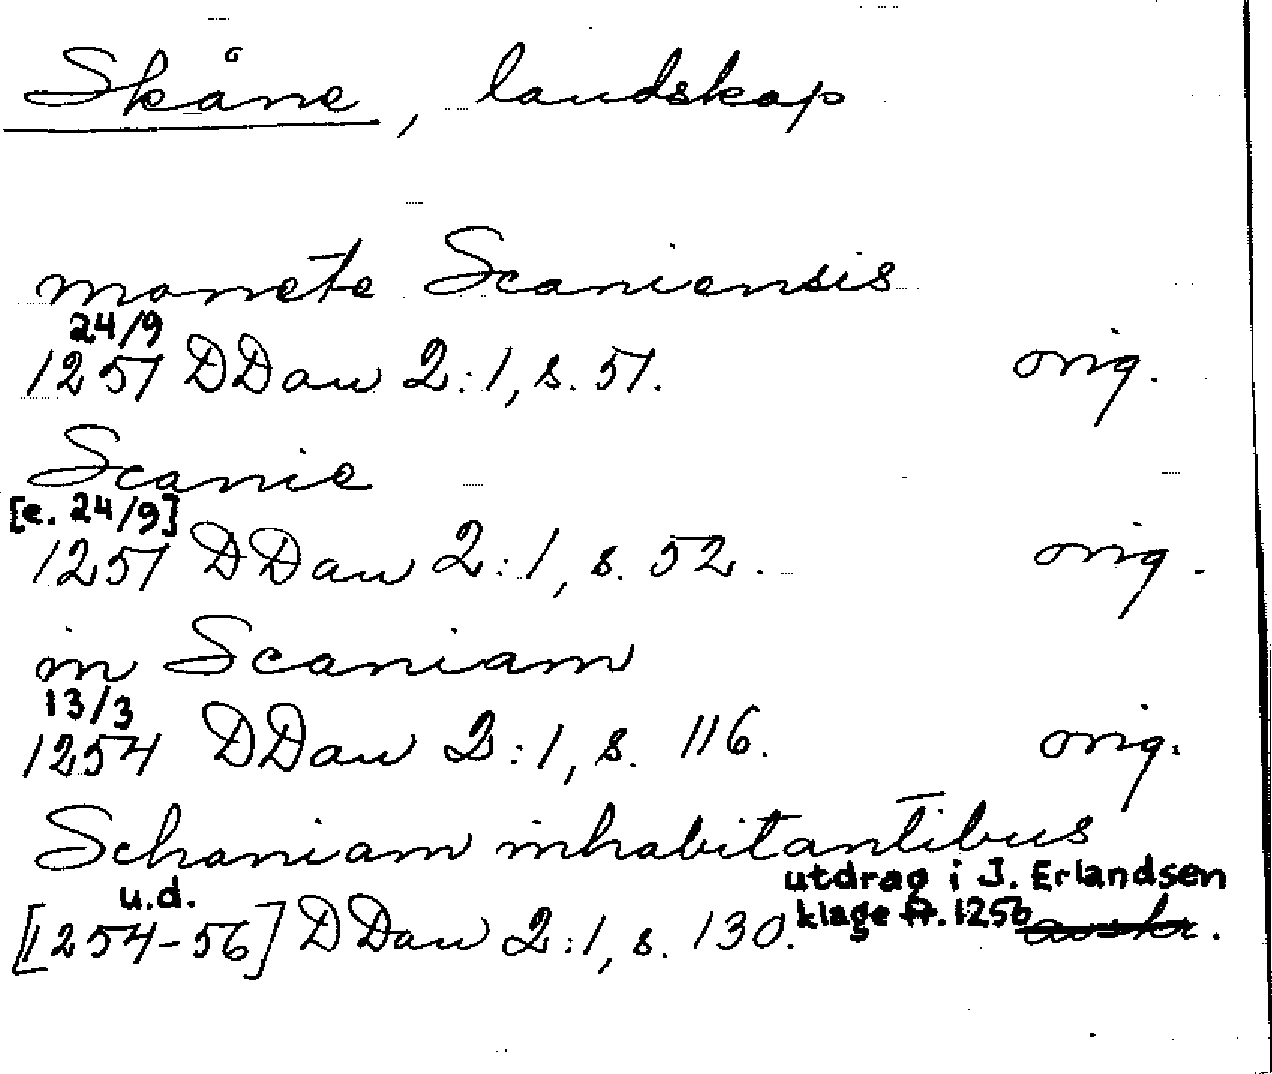 Skåne, landskap
monete Scaniensis
24/9
1251 DDan 2:1, s. 51. orig.
Scanie
[e. 24/9]
1251 DDan 2:1, s. 52. orig.
in Scaniam
13/3
1254 DDan 2:1, s. 116. orig.
Schaniam inhabitantibus
u.d. utdrag i J. Erlandsen
[1254-56] DDan 2:1, s. 130. klage fr. 1256 avskr.